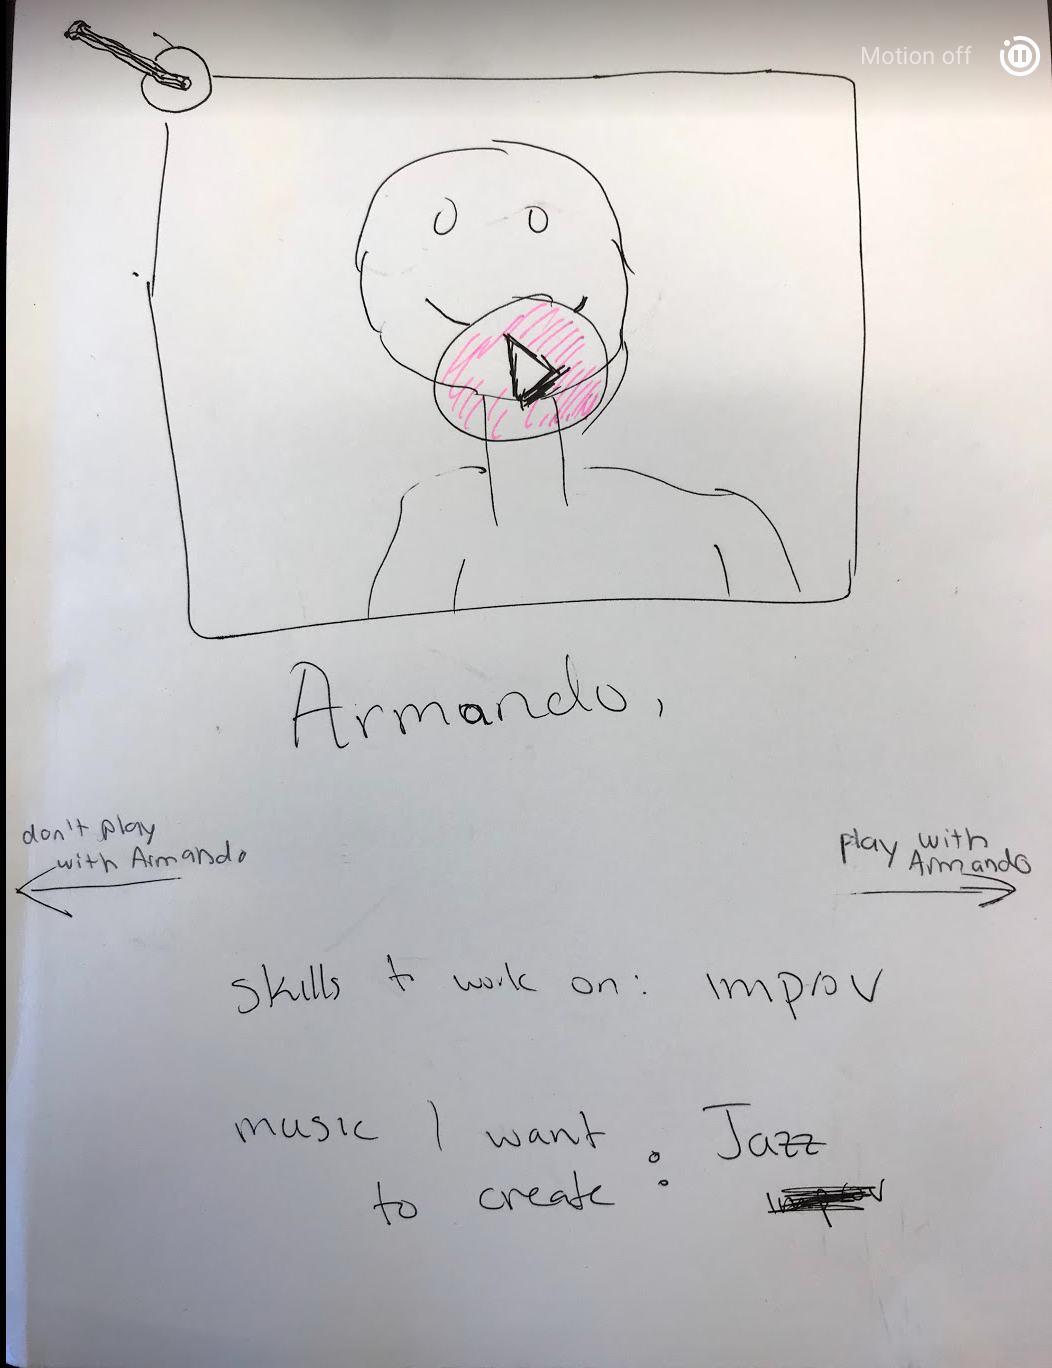 Motion off
Armando,
don't play
with Armando
play with
Armando
skills to work on: improv
music I want : Jazz
to create
improv